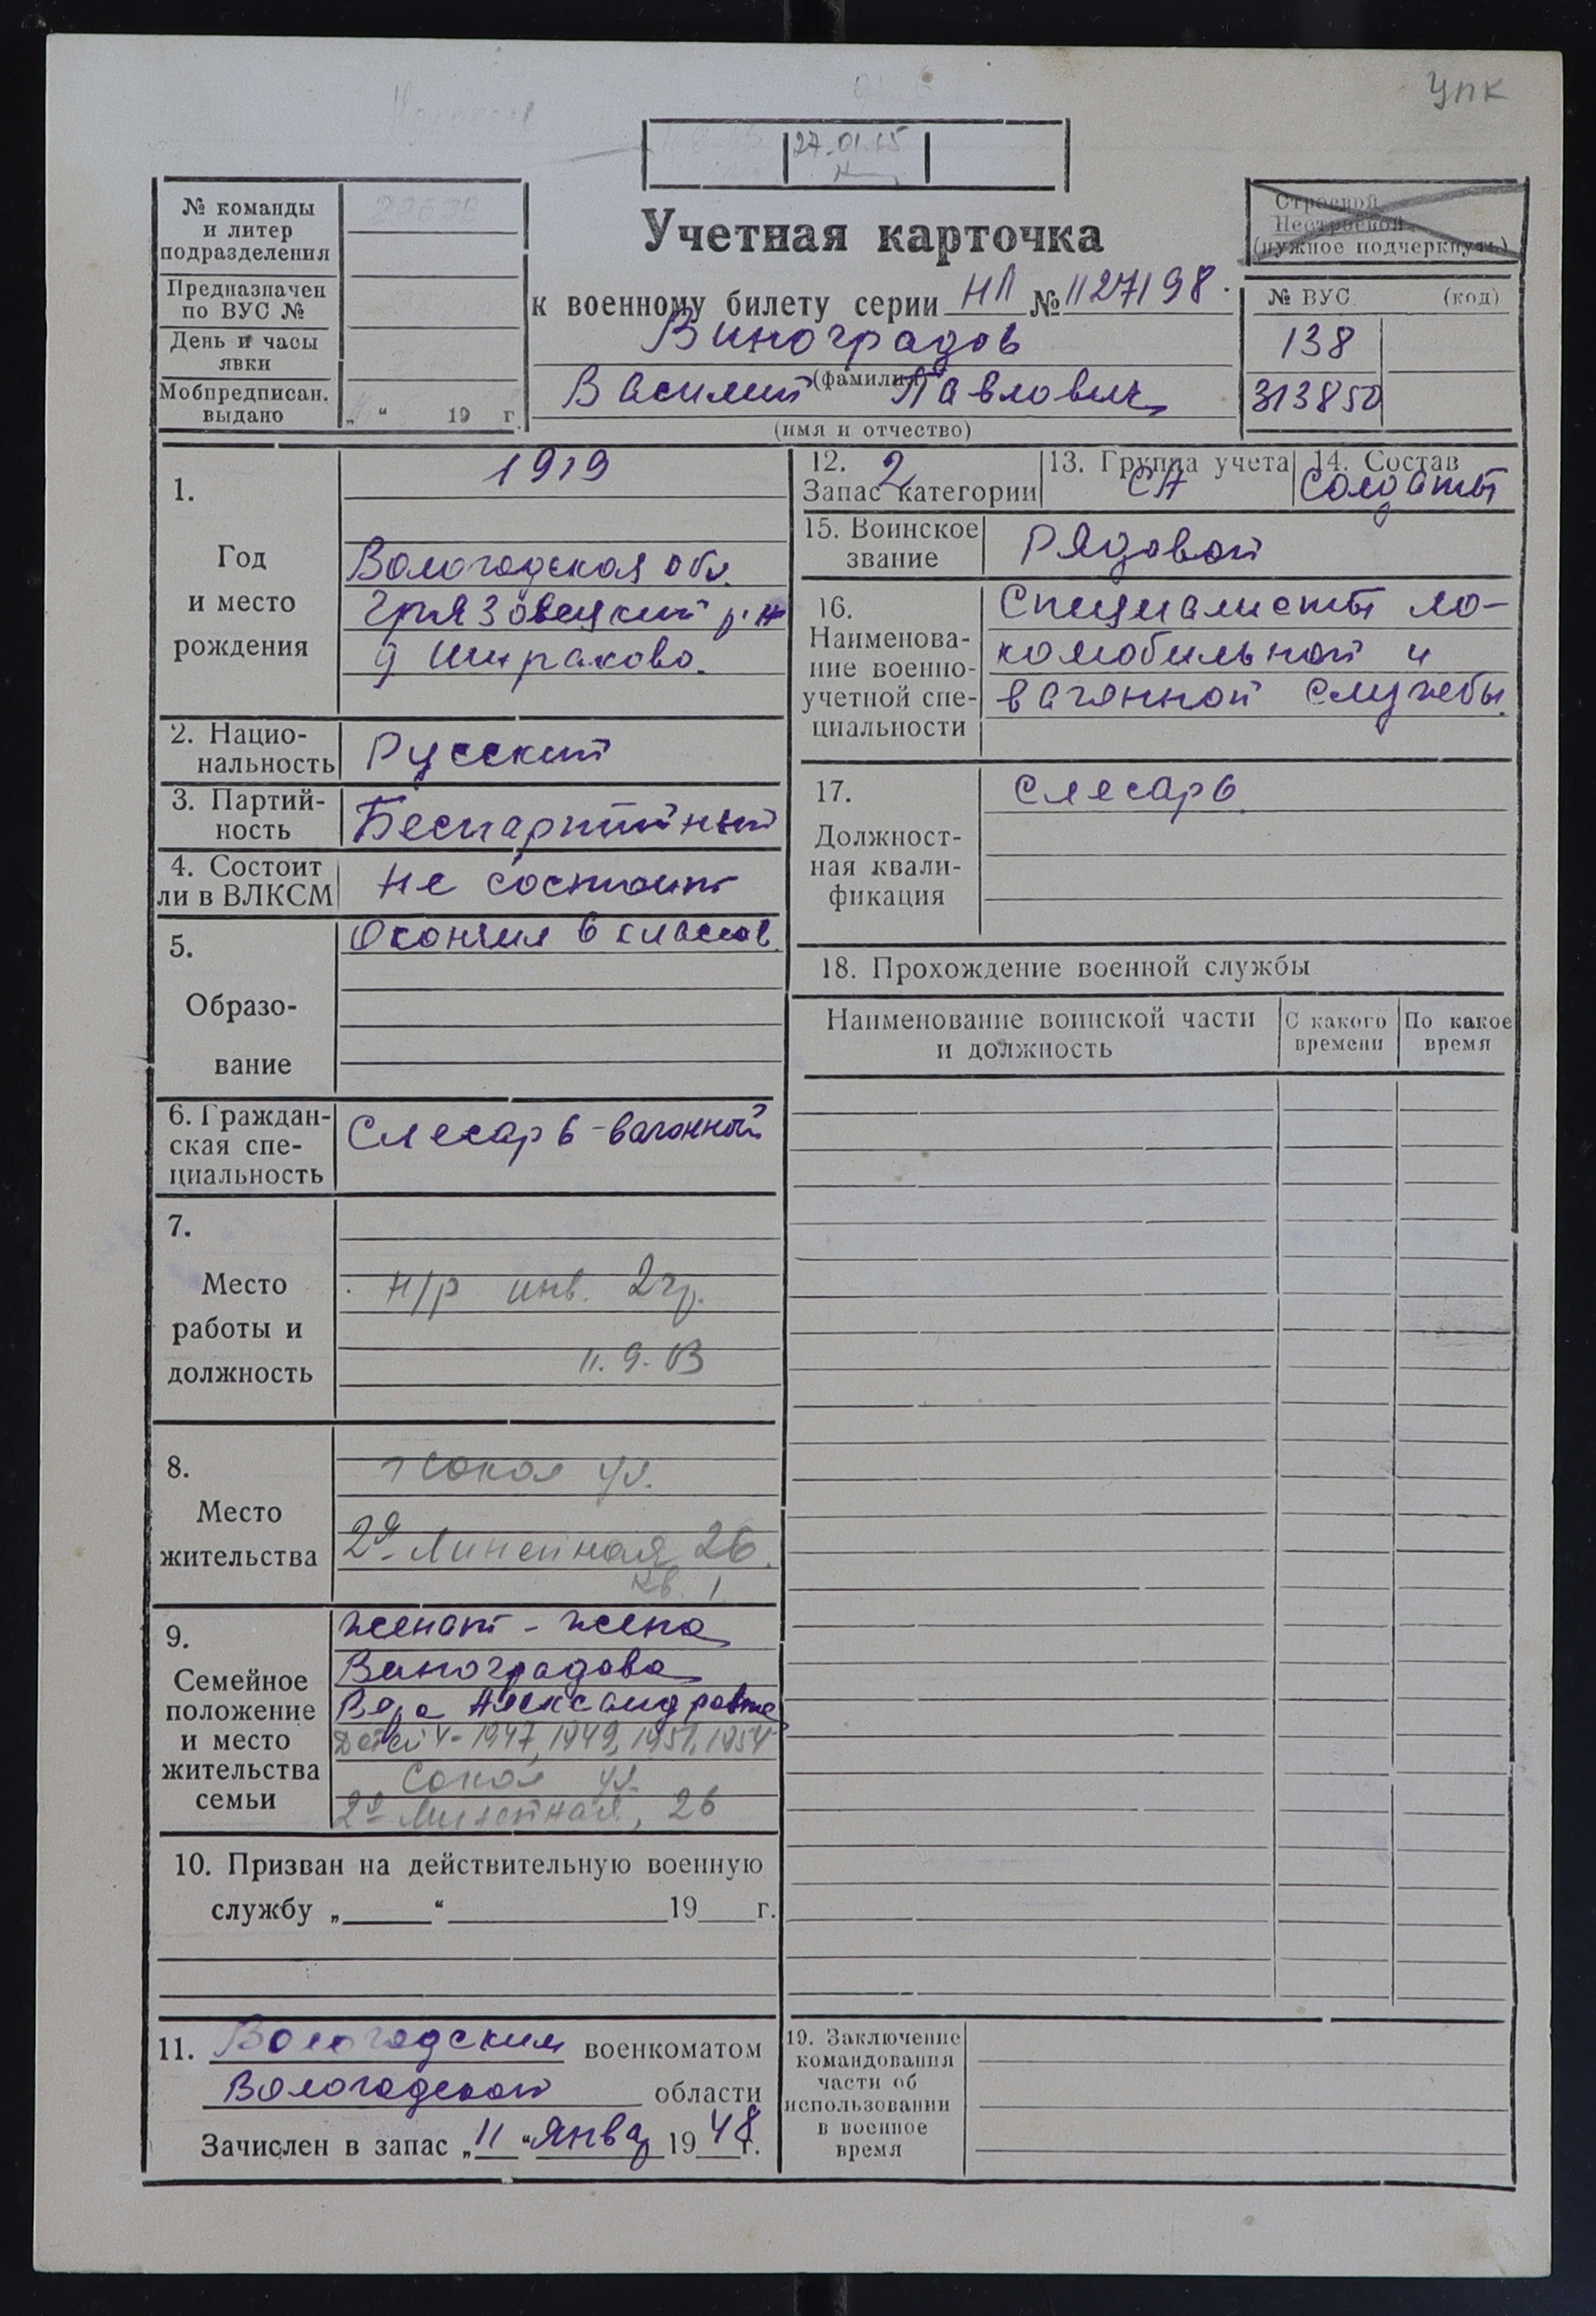 упк
27.01.65
№ команды
и литер
подразделения
Предназначен
по ВУС №
День и часы
явки
Мобпредписан.
выдано
„ “ 19 г.
Учетная карточка
к военному билету серии НЛ № 1127198.
Виноградов
(фамилия)
Василий Павлович
(имя и отчество)
Строевой
Нестроевой
(нужное подчеркнуть)
№ ВУС (код)
138
313850
1.
Год
и место
рождения
1919
Вологодская обл.
Грязовецкий р-н
2. Нацио-
нальность
Русский
3. Партий-
ность
Беспартийный
4. Состоит
ли в ВЛКСМ
Не состоит
5.
Образо-
вание
Окончил 6 классов.
6. Граждан-
ская спе-
циальность
Слесарь-вагонный
7.
Место
работы и
должность
н/р инв. 2 гр.
8.
Место
жительства
г Сокол ул.
2я Линейная 26.
кв. 1
9.
Семейное
положение
и место
жительства
семьи
женат - жена
Виноградова
Вера Александровна
Детей 4-1947, 1949, 1951, 1954
Сокол ул.
2я Линейная, 26
10. Призван на действительную военную
службу „ “ 19 г.
11. Вологодским военкоматом
Вологодской области
Зачислен в запас „11“ январ 1948 г.
12. 2
Запас категории
13. Группа учета
СА
14. Состав
Солдаты
15. Воинское
звание
Рядовой
16.
Наименова-
ние военно-
учетной спе-
циальности
Специалисты ло-
комобильной и
вагонной службы.
17.
Должност-
ная квали-
фикация
Слесарь
18. Прохождение военной службы
Наименование воинской части
и должность
С какого
времени
По какое
время
19. Заключение
командования
части об
использовании
в военное
время